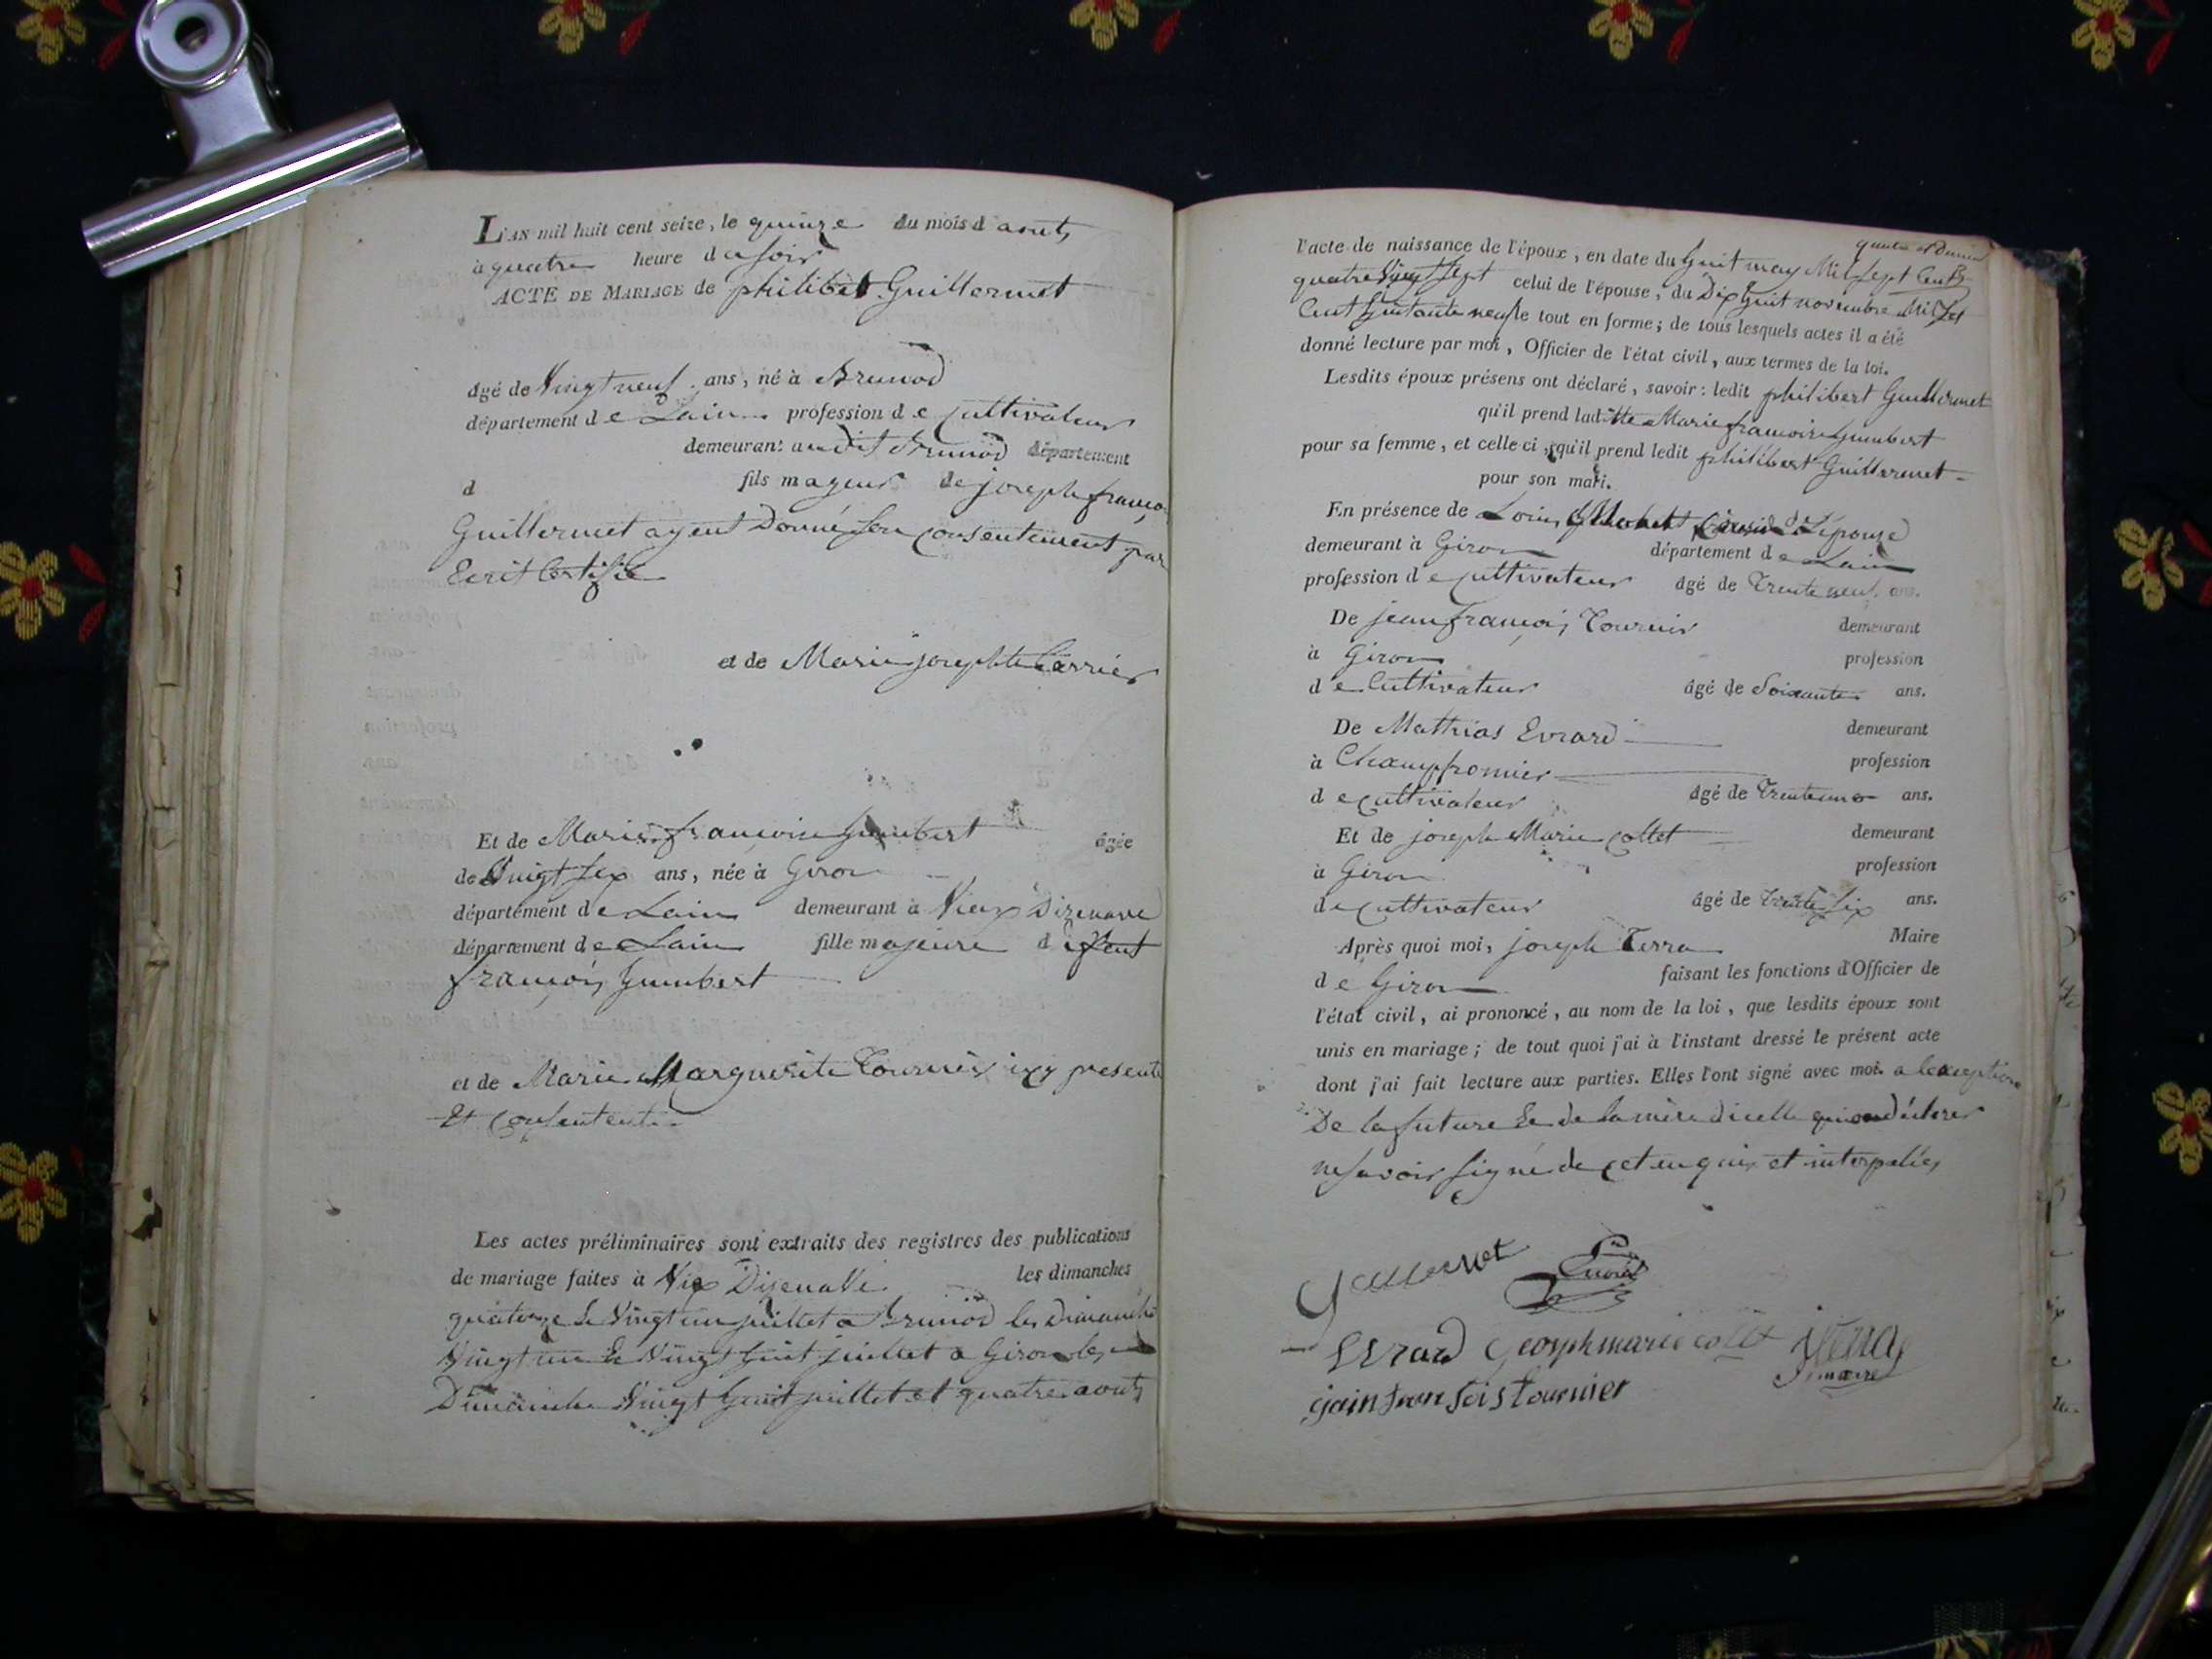 L'AN mil huit cent seize, le quinze du mois d aouts
à quatre heure d u soir
ACTE DE MARIAGE de philibert Guillermet
âgé de Vingt neuf ans, né à Brenod
département d e Lain profession d e cultivateur
demeurant audit Brenod département
d fils majeur de joseph françois
Guillermet ayent Donné son consentement par
Ecrit Certifié
et de Marie josephte Carrier
Et de Marie françoise humbert âgée
de Vingt Sex ans, née à Giron
département d e Lain demeurant à Vieux Dizenave
département d e Lain fille majeure d
françois humbert
et de Marie Marguerite Tournier icy presente
Et consentente
Les actes préliminaires sont extraits des registres des publications
de mariage faites à Viex Disenave les dimanches
quatorze Et Vingt un juillet a Brenod les Dimanche
Vingt un Et Vingt huit juillet a Giron les
Dimanche Vingt huit juillet et quatre aouts
l'acte de naissance de l'époux, en date du huit may Mil Sept Cent
quatre Vingt Sept celui de l'épouse, du Dix huit novembre Mil Set
Cent le tout en forme; de tous lesquels actes il a été
donné lecture par moi, Officier de l'état civil, aux termes de la loi.
Lesdits époux présens ont déclaré, savoir: ledit philibert Guillermet
qu'il prend laditte Marie francoise humbert
pour sa femme, et celle-ci, qu'il prend ledit philibert Guillermet
pour son mari.
En présence de Louis de Lépouse
demeurant à Giron département d e Lain
profession d e cultivateur âgé de Trente neuf ans.
De jean françois Tournier demeurant
à Giron profession
d e Cultivateur âgé de Soixante ans.
De Mathias Evrard demeurant
à Champfromier profession
d e cultivateur âgé de Trente uns ans.
Et de joseph Marie Collet demeurant
à Giron profession
d e cultivateur âgé de Trente Six ans.
Après quoi moi, joseph Terra Maire
d e Giron faisant les fonctions d'Officier de
l'état civil, ai prononcé, au nom de la loi, que lesdits époux sont
unis en mariage; de tout quoi j'ai à l'instant dressé le présent acte
dont j'ai fait lecture aux parties. Elles l'ont signé avec moi. a lexception
De la future Et de la mère dicelle qui on déclarer
ne savoir signé de cet enquis et interpellés
Evrard joseph marie colet
maire
jain fran sois tournier